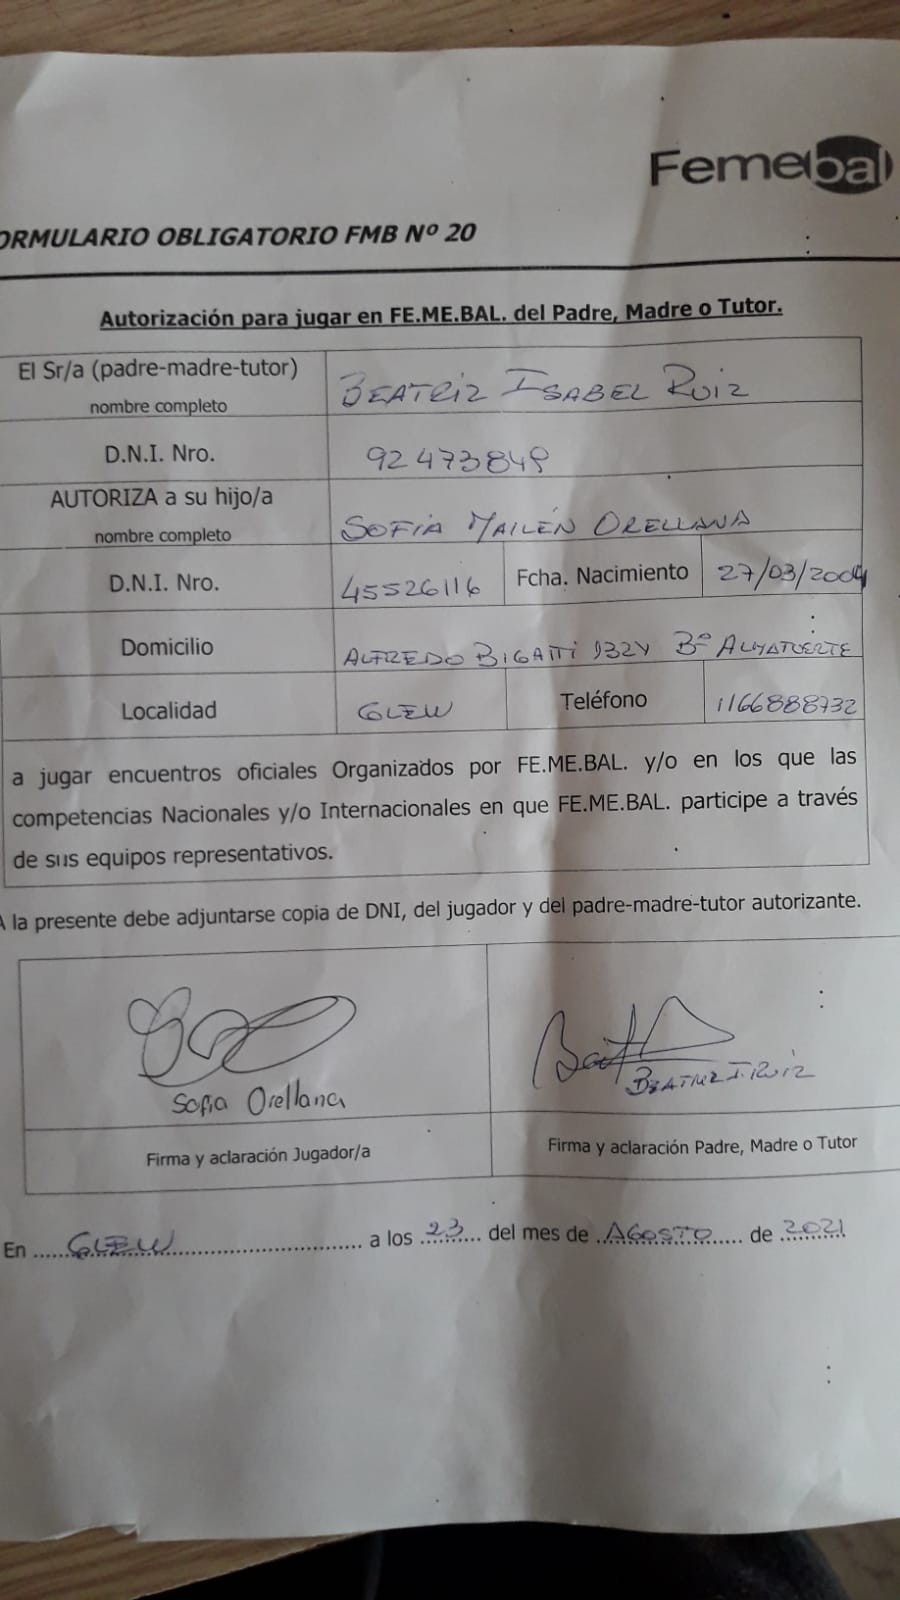 Femebal
ORMULARIO OBLIGATORIO FMB Nº 20
Autorización para jugar en FE.ME.BAL. del Padre, Madre o Tutor.
El Sr/a (padre-madre-tutor)
nombre completo
BEATRIZ ISABEL RUIZ
D.N.I. Nro.
92473849
AUTORIZA a su hijo/a
nombre completo
SOFÍA MAILÉN ORELLANA
D.N.I. Nro. 45526116 Fcha. Nacimiento 27/03/2004
Domicilio ALFREDO BIGATTI Bº ALMAFUERTE
Localidad GLEW Teléfono 1166888732
a jugar encuentros oficiales Organizados por FE.ME.BAL. y/o en los que las
competencias Nacionales y/o Internacionales en que FE.ME.BAL. participe a través
de sus equipos representativos.
A la presente debe adjuntarse copia de DNI, del jugador y del padre-madre-tutor autorizante.
Sofia Orellana
BEATRIZ I. RUIZ
Firma y aclaración Jugador/a
Firma y aclaración Padre, Madre o Tutor
En GLEW a los 23 del mes de AGOSTO de 2021